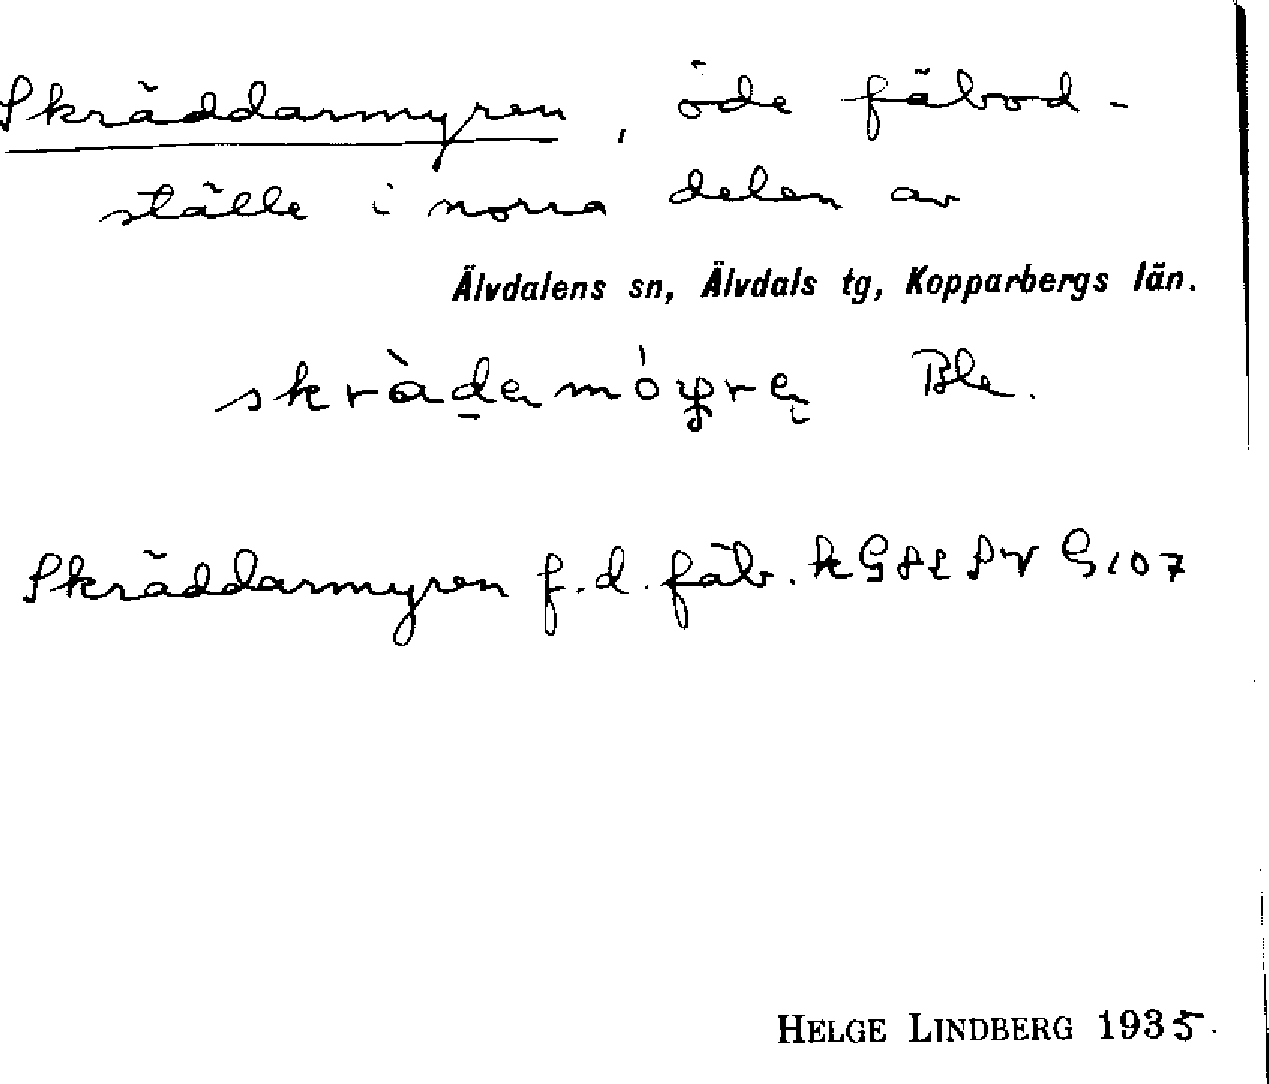 Skräddarmyren, öde fäbod-
ställe i norra delen av
Älvdalens sn, Älvdals tg, Kopparbergs län.
Ble.
Skräddarmyren f.d. fäb. k G82 SV G107
HELGE LINDBERG 1935.